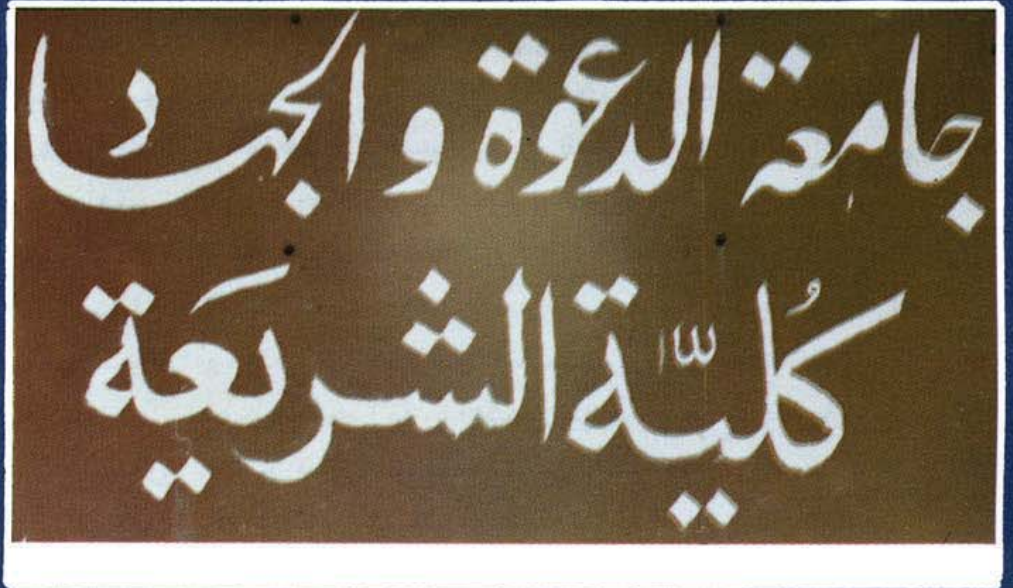 جامعة الدعوة والجهاد
كُليّة الشريعَة